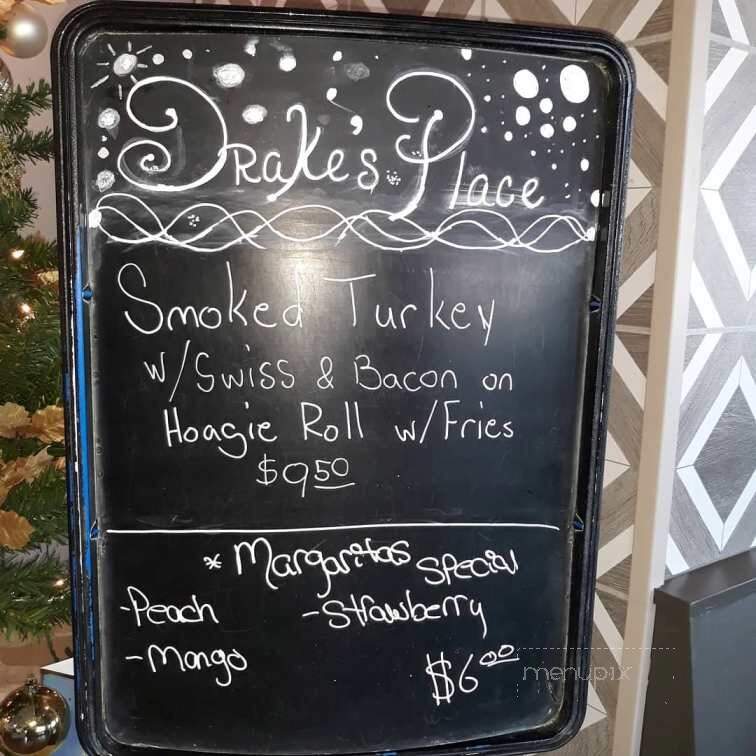 Drake's Place
Smoked Turkey
w/Swiss & Bacon on
Hoagie Roll w/Fries
$9.50
* Margaritas Special
-Peach -Strawberry
-Mango
$6.00
menupix